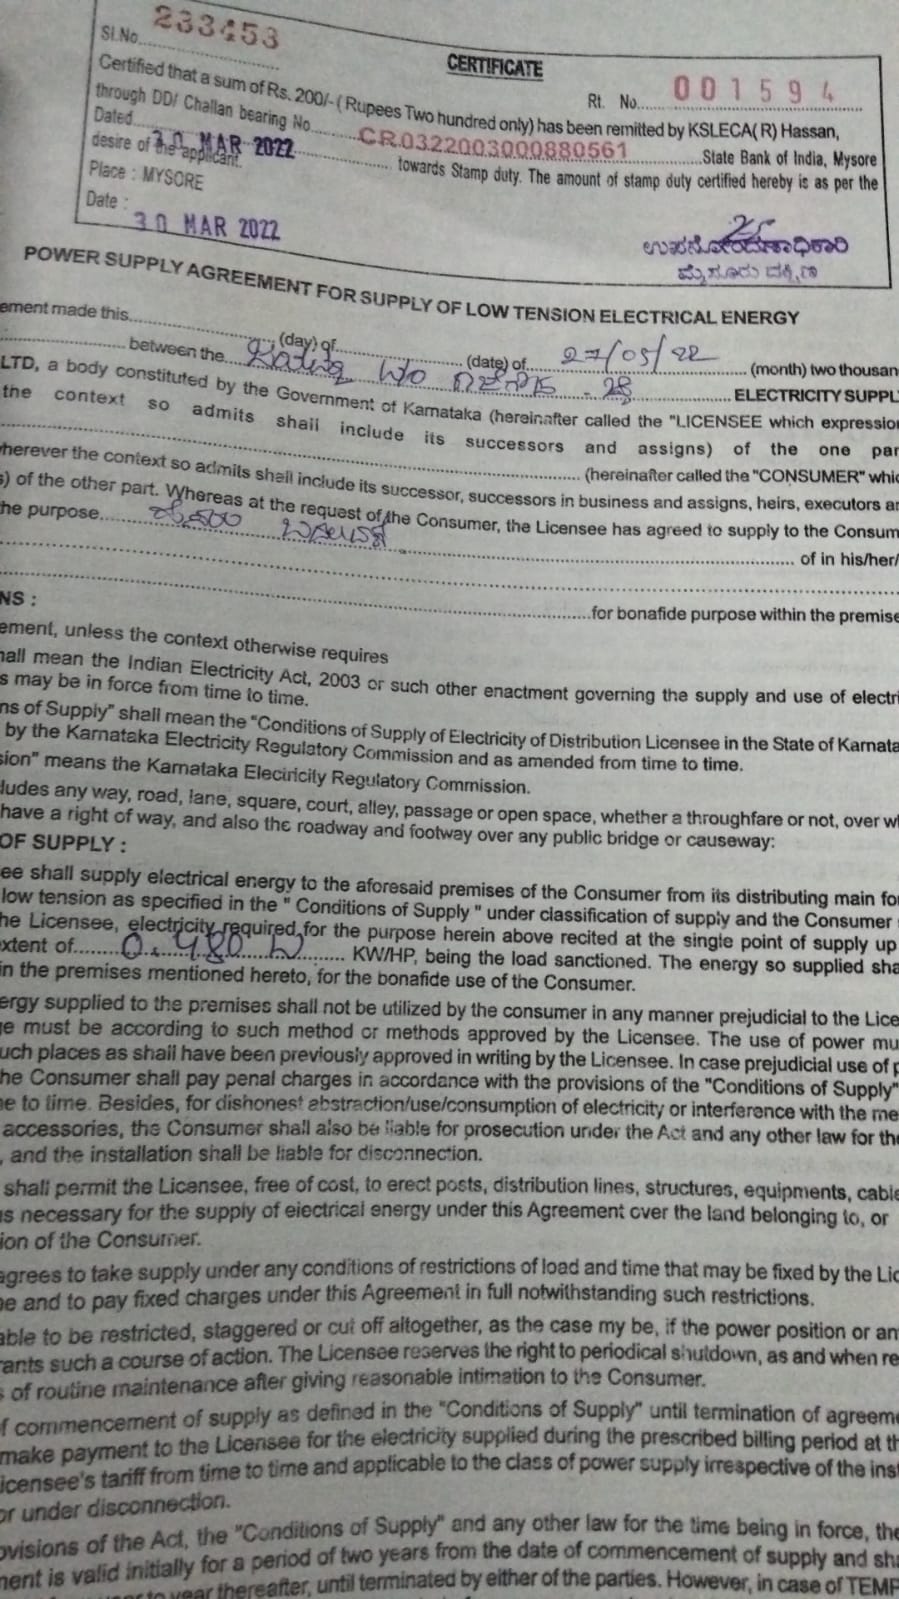 Sl.No. 233453
CERTIFICATE
Rt. No. 001594
Certified that a sum of Rs. 200/- ( Rupees Two hundred only) has been remitted by KSLECA( R) Hassan,
through DD/ Challan bearing No. CR.0322003000880561 State Bank of India, Mysore
Dated 30 MAR 2022 towards Stamp duty. The amount of stamp duty certified hereby is as per the
desire of the applicant.
Place : MYSORE
Date : 30 MAR 2022
ಉಪನೋಂದಣಾಧಿಕಾರಿ
ಮೈಸೂರು ದಕ್ಷಿಣ
POWER SUPPLY AGREEMENT FOR SUPPLY OF LOW TENSION ELECTRICAL ENERGY
ement made this (day) of (date) of 27/05/22 (month) two thousan
between the W/o ELECTRICITY SUPPL
LTD, a body constituted by the Government of Karnataka (hereinafter called the "LICENSEE which expression
the context so admits shall include its successors and assigns) of the one par
(hereinafter called the "CONSUMER" whic
wherever the context so admits shall include its successor, successors in business and assigns, heirs, executors an
s) of the other part. Whereas at the request of the Consumer, the Licensee has agreed to supply to the Consum
he purpose of in his/her/
for bonafide purpose within the premise
NS :
ement, unless the context otherwise requires
hall mean the Indian Electricity Act, 2003 or such other enactment governing the supply and use of electri
s may be in force from time to time.
ns of Supply" shall mean the "Conditions of Supply of Electricity of Distribution Licensee in the State of Karnata
by the Karnataka Electricity Regulatory Commission and as amended from time to time.
sion" means the Karnataka Electricity Regulatory Commission.
ludes any way, road, lane, square, court, alley, passage or open space, whether a throughfare or not, over wh
have a right of way, and also the roadway and footway over any public bridge or causeway:
OF SUPPLY :
ee shall supply electrical energy to the aforesaid premises of the Consumer from its distributing main fo
low tension as specified in the " Conditions of Supply " under classification of supply and the Consumer
he Licensee, electricity required for the purpose herein above recited at the single point of supply up
extent of 0.480 W KW/HP, being the load sanctioned. The energy so supplied sha
in the premises mentioned hereto, for the bonafide use of the Consumer.
ergy supplied to the premises shall not be utilized by the consumer in any manner prejudicial to the Lice
ge must be according to such method or methods approved by the Licensee. The use of power mu
uch places as shall have been previously approved in writing by the Licensee. In case prejudicial use of p
he Consumer shall pay penal charges in accordance with the provisions of the "Conditions of Supply"
e to time. Besides, for dishonest abstraction/use/consumption of electricity or interference with the me
accessories, the Consumer shall also be liable for prosecution under the Act and any other law for the
, and the installation shall be liable for disconnection.
shall permit the Licensee, free of cost, to erect posts, distribution lines, structures, equipments, cable
s necessary for the supply of electrical energy under this Agreement over the land belonging to, or
ion of the Consumer.
agrees to take supply under any conditions of restrictions of load and time that may be fixed by the Lic
e and to pay fixed charges under this Agreement in full notwithstanding such restrictions.
able to be restricted, staggered or cut off altogether, as the case my be, if the power position or an
rants such a course of action. The Licensee reserves the right to periodical shutdown, as and when re
s of routine maintenance after giving reasonable intimation to the Consumer.
f commencement of supply as defined in the "Conditions of Supply" until termination of agreeme
make payment to the Licensee for the electricity supplied during the prescribed billing period at th
icensee's tariff from time to time and applicable to the class of power supply irrespective of the inst
or under disconnection.
ovisions of the Act, the "Conditions of Supply" and any other law for the time being in force, the
ment is valid initially for a period of two years from the date of commencement of supply and sha
year thereafter, until terminated by either of the parties. However, in case of TEMP